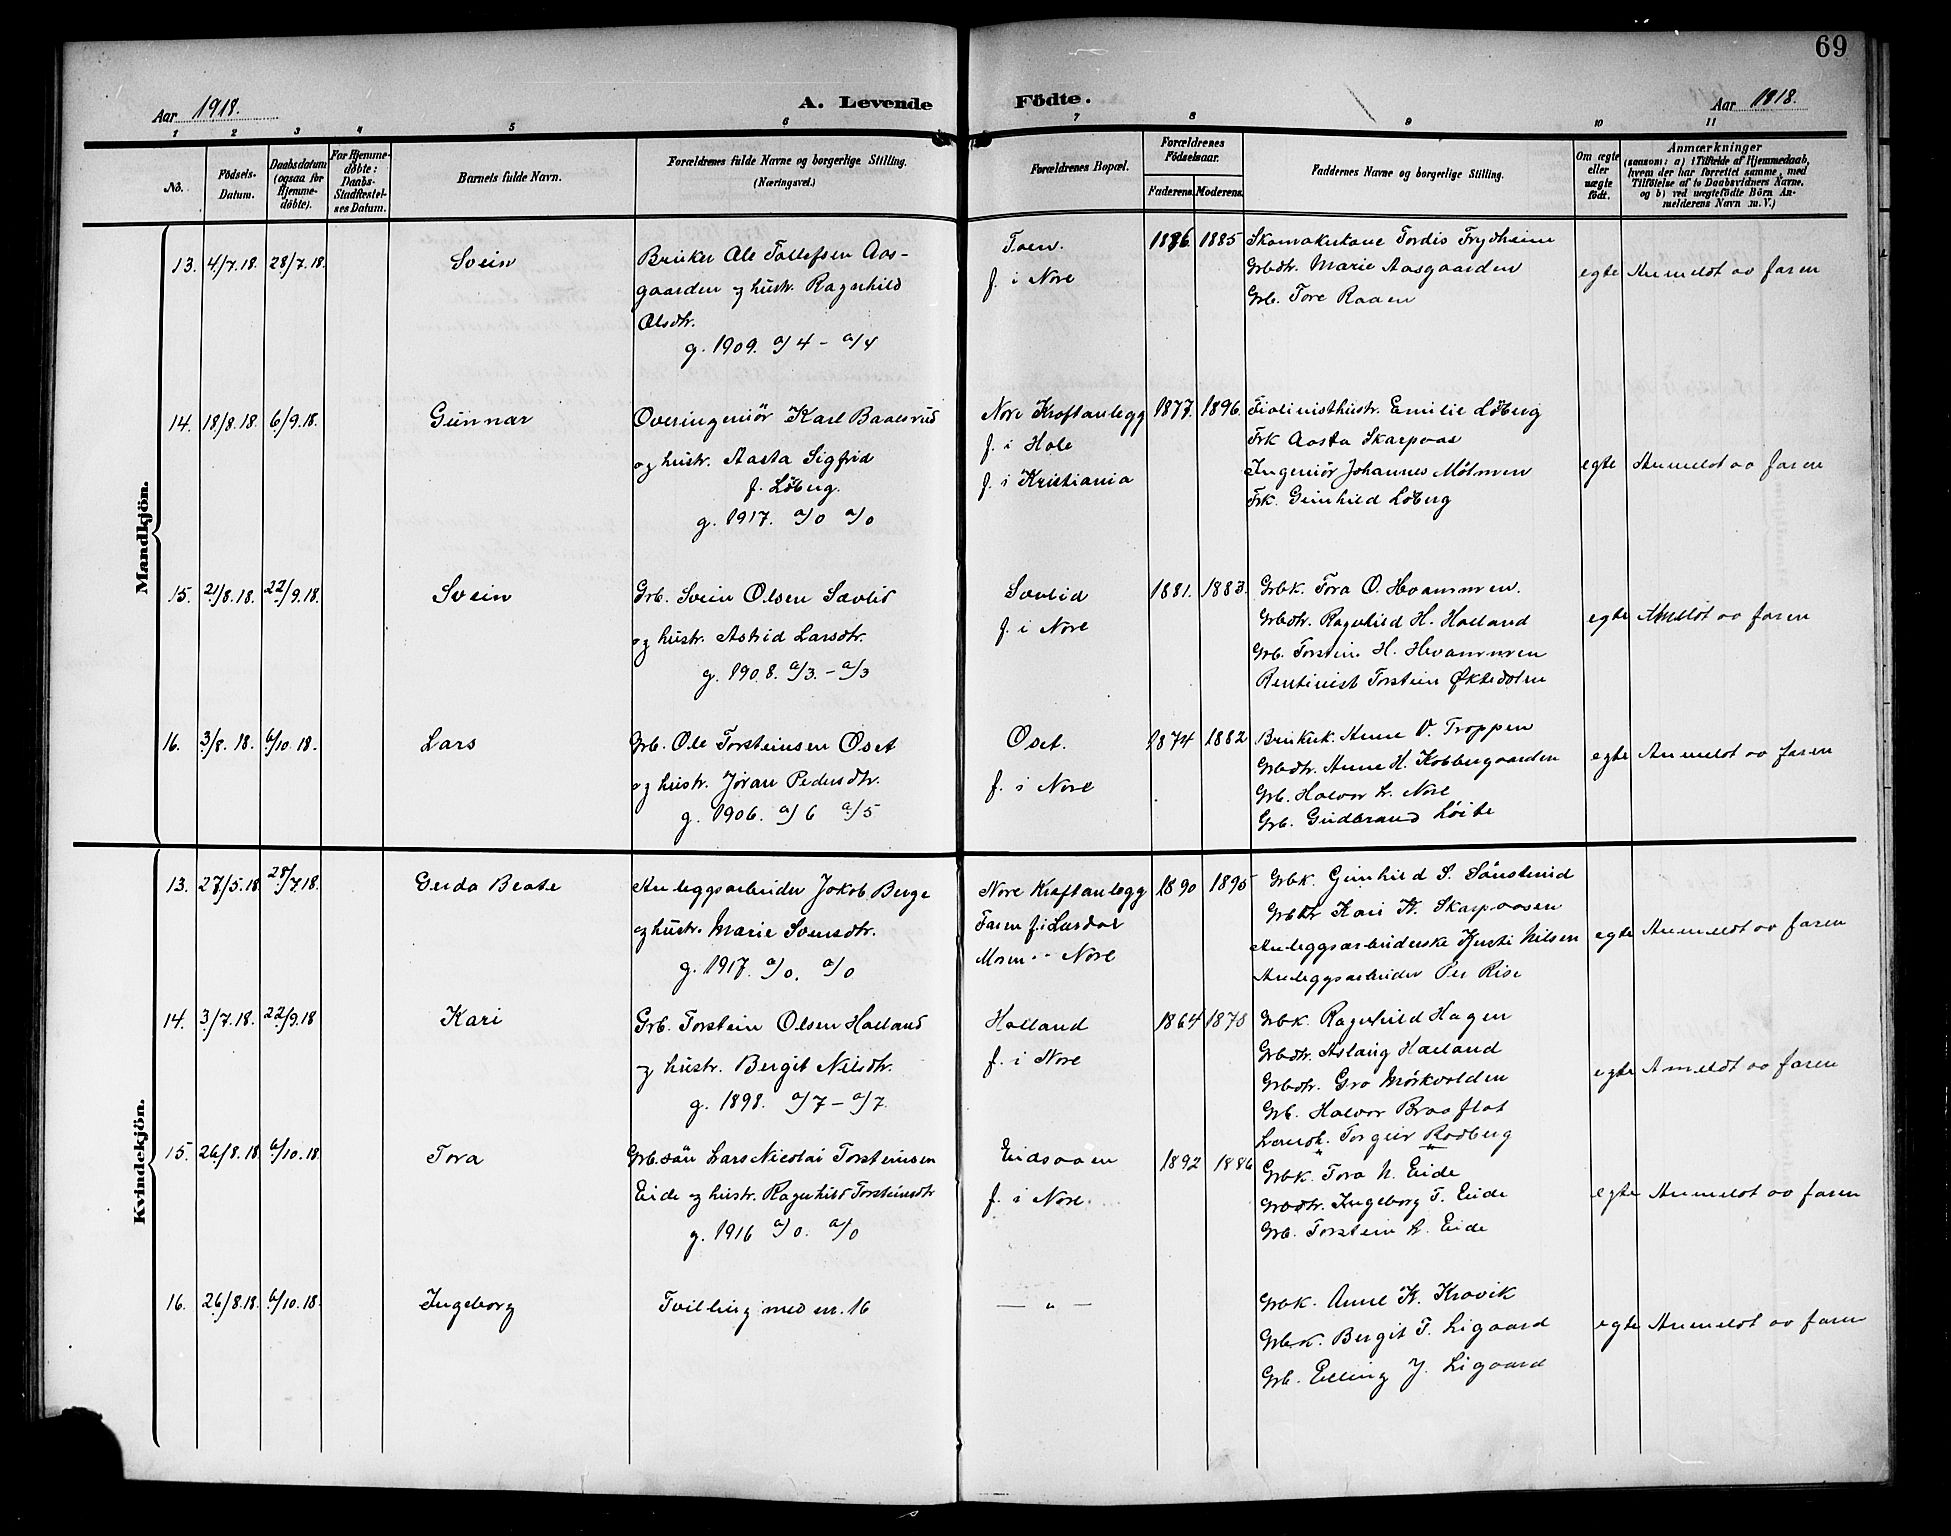 69
Aar 1918.
A. Levende Födte.
Aar 1918.
1 2 3 4 5 6 7 8 9 10 11
No.
Födsels-Datum.
Daabsdatum (ogsaa for Hjemme-döbte).
For Hjemme-döbte: Daabs-Stadfæstel-ses Datum.
Barnets fulde Navn.
Forældrenes fulde Navne og borgerlige Stilling. (Næringsvei.)
Forældrenes Bopæl.
Forældrenes Födselsaar.
Faderens. Moderens.
Faddernes Navne og borgerlige Stilling.
Om ægte eller uægte födt.
Anmærkninger
(saasom: a) i Tilfælde af Hjemmedaab, hvem der har forrettet samme, med Tilföielse af to Daabsvidners Navne, og b) ved uægtefödte Börn An-melderens Navn m. V.)
Mandkjön.
13. 4/7.18. 28/7.18. Svein
Bruker Ole Tollefsen Aas-
gaarden og hustr. Ragnhild
Olsdtr.
g. 1909. a/4 - a/4
Toen.
f. i Nore
1886 1885
Skomakerkone Tordis Frydheim
Grbdtr. Marie Aasgaarden
Grb. Tore Raaen
egte Anmeldt av faren
14. 18/8.18. 6/9.18. Gunnar
Overingeniör Karl Baalsrud
og hustr. Aasta Sigfrid
f. Löberg.
g. 1917. a/0 a/0
Nore Kraftanlegg
f. i Hole
f. i Kristiania
1877. 1896.
Violinisthustr. Emilie Löberg
Frk Aasta Skarpaas
Ingeniör Johannes Mölmen
Frk. Gunhild Löberg
egte Anmeldt av faren
15. 21/8.18. 22/9.18. Svein
Grb. Svein Olsen Sævlid
og hustr. Astrid Larsdtr.
g. 1908. a/3. - a/3
Sævlid
f. i Nore
1881. 1883.
Grbk. Tora O. Hvammen.
Grbdtr. Ragnhild H. Haaland
Grb. Torstein H. Hvammen
Rentenist Torstein Øktedalen
egte Anmeldt av faren
16. 3/8.18. 6/10.18. Lars
Grb. Ole Torsteinsen Oset
og hustr. Jöran Pedersdtr.
g. 1906. a/6 a/5
Oset.
f. i Nore
1874 1882
Brukerk. Anne O. Troppen
Grbdtr. Anne H. Kobbergaarden
Grb. Halvor L. Nore
Grb. Gudbrand Löite
egte Anmeldt av faren
Kvindekjön.
13. 27/5.18. 28/7.18. Gerda Beate
Anleggsarbeider Jakob Berge
og hustr. Marie Svensdtr.
g. 1917. a/0. a/0
Nore Kraftanlegg
Faren f. i Lærdal
Moren " Nore
1890 1895
Grbk. Gunhild S. Sönsterud
Grbdtr Kari K. Skarpaasen
Anleggsarbeiderske Kjersti Nilsen
Anleggsarbeider Per Rise
egte Anmeldt av faren
14. 3/7.18. 22/9.18 Kari
Grb. Torstein Olsen Haaland
og hustr. Bergit Nilsdtr.
g. 1898. a/7 - a/7.
Haaland
f. i Nore
1864 1878
Grbk. Ragnhild Hagen
Grbdtr. Aslaug Haaland
Grbdtr. Gro Mörkvolden
Grb. Halvor Braaflot
Lensm. Torgeir Rodberg
egte Anmeldt av faren
15. 26/8.18 6/10.18 Tora
Grb.sön Lars Nicolai Torsteinsen
Eide og hustr. Ragnhild Torsteinsdtr
g. 1916 a/0. a/0
Eidsaaen
f. i Nore.
1892 1886
Grbk. Tora N. Eide
Grbdtr. Ingeborg T. Eide
Grb. Torstein L. Eide
egte Anmeldt av faren
16. 26/8.18. 6/10.18. Ingeborg
Tvilling med nr. 16
— " —
Grbk. Anne K. Kravik
Grbk. Bergit T. Ligaard
Grb. Elling J. Ligaard
egte Anmeldt av faren